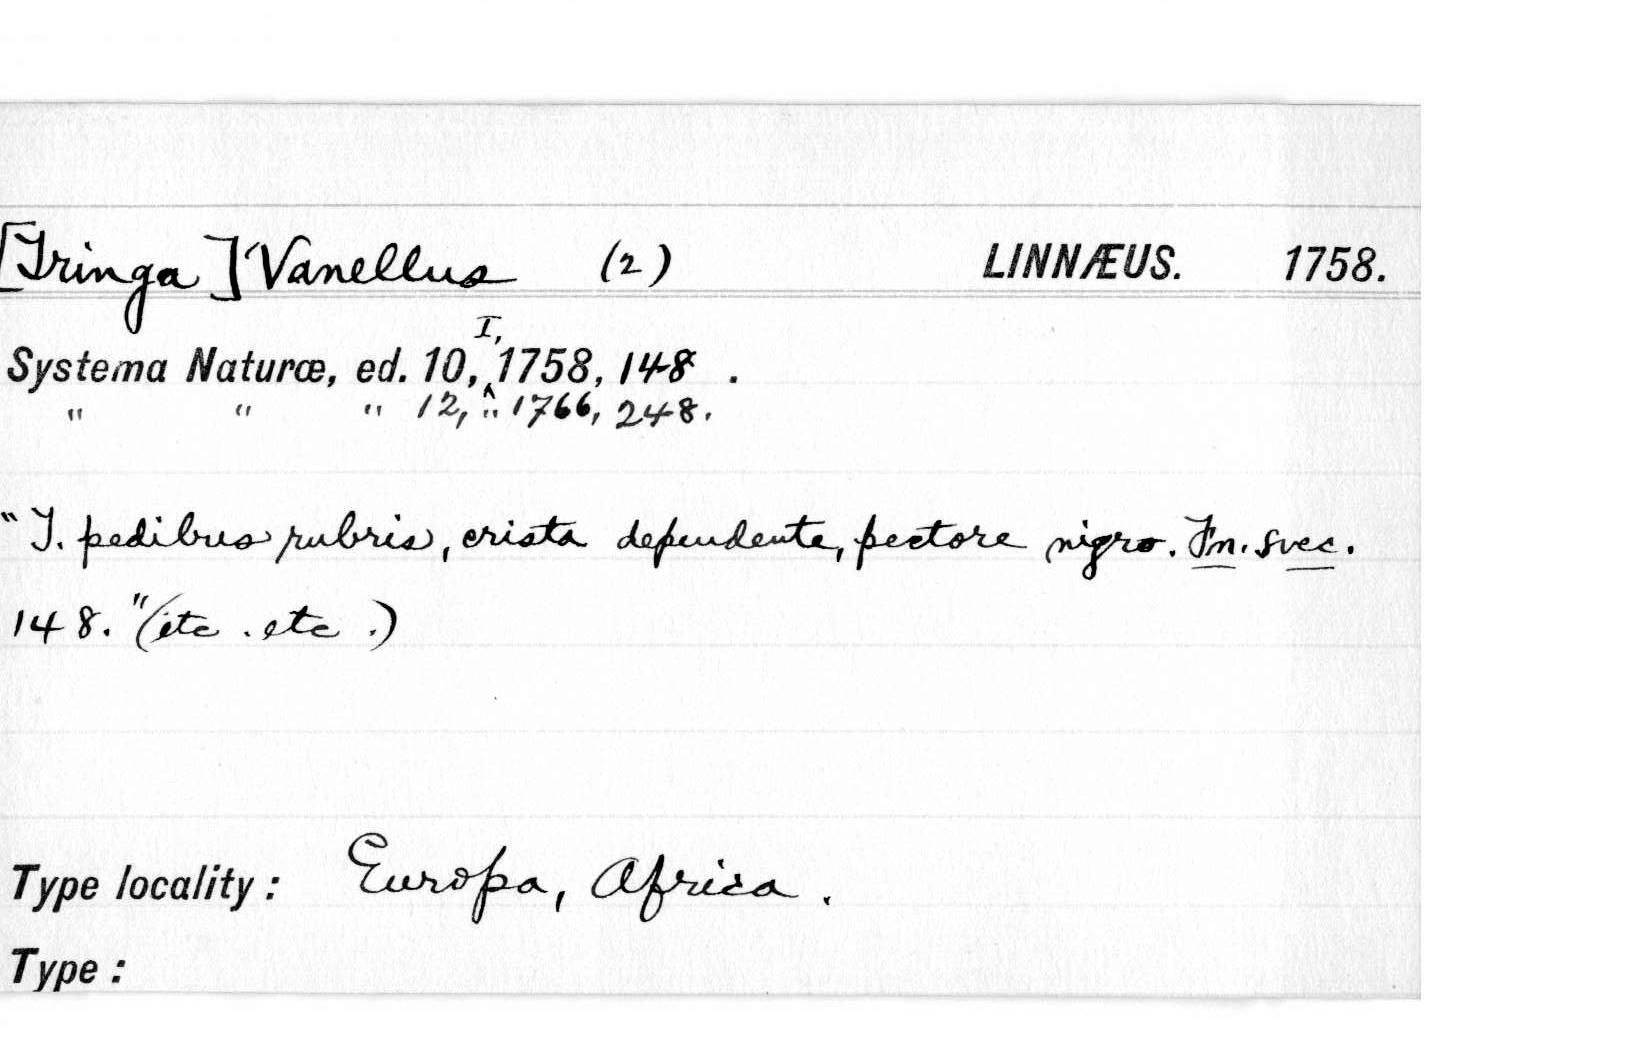 [Tringa] Vanellus (2) LINNÆUS. 1758.
Systema Naturæ, ed. 10, I, 1758, 148 .
" " " 12, " 1766, 248.
"T. pedibus rubris, crista dependente, pectore nigro. Fn. svec.
148." (etc . etc .)
Type locality : Europa, Africa .
Type :